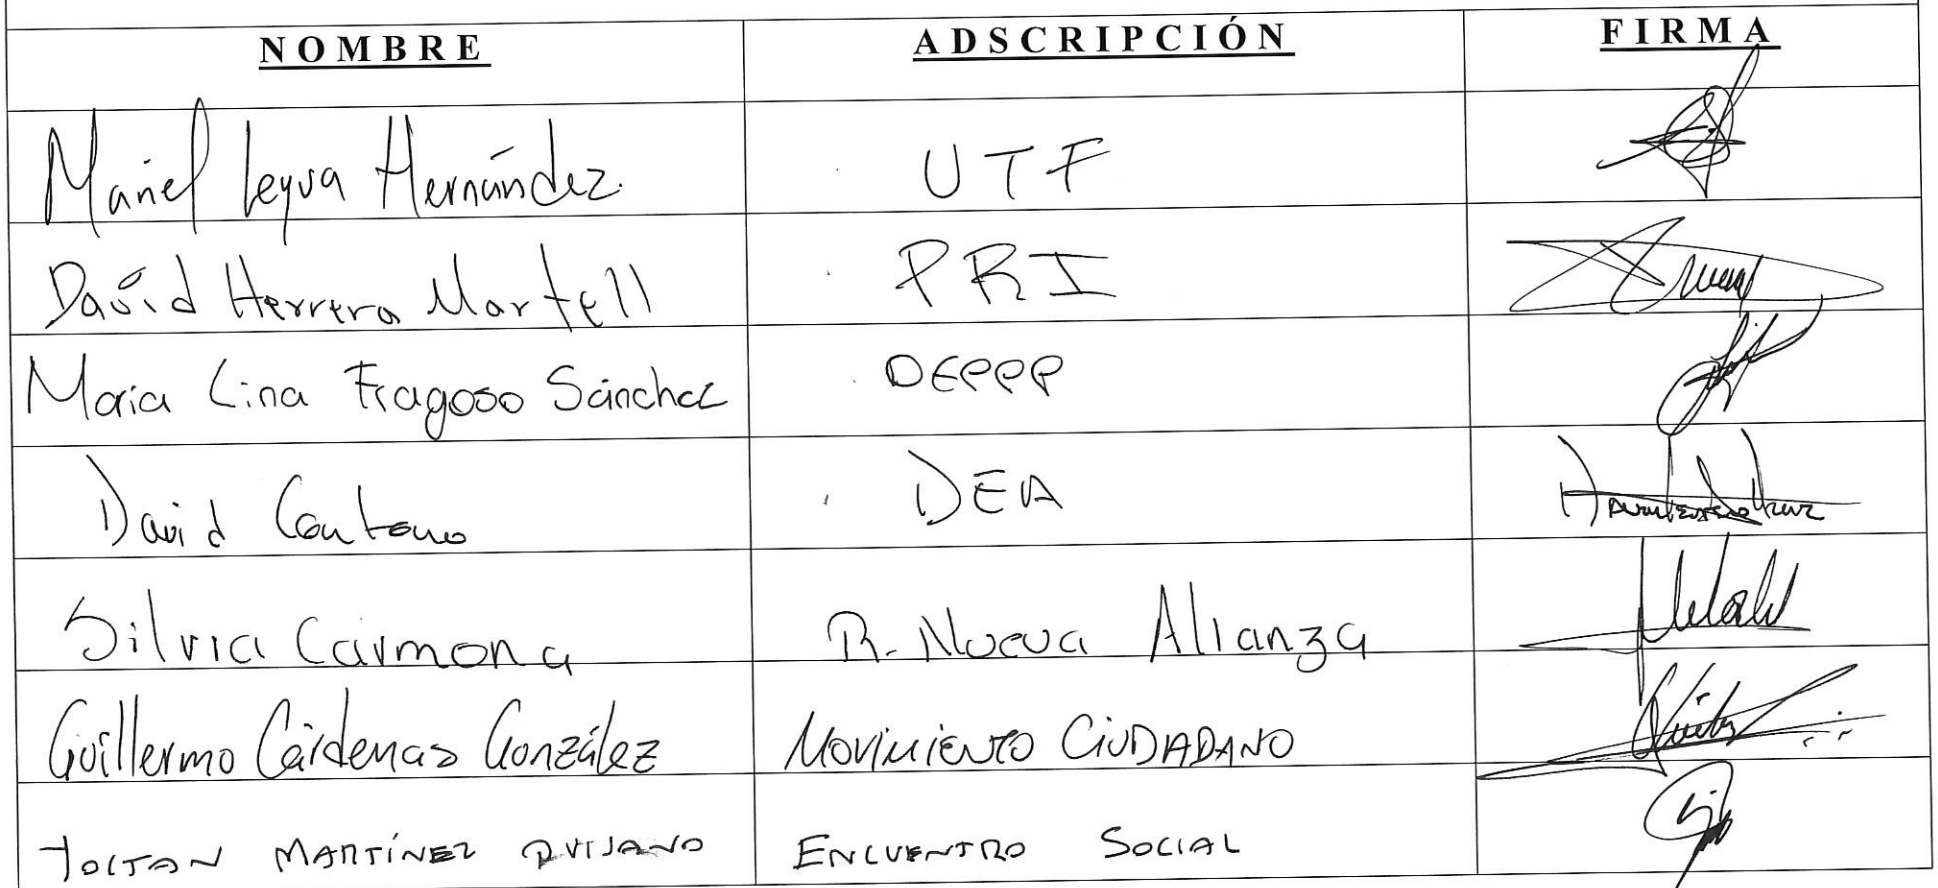 NOMBRE ADSCRIPCIÓN FIRMA
Mariel Leyva Hernández. UTF
David Herrera Martell PRI
Maria Lina Fragoso Sánchez DEPPP
David DEA
Silvia Carmona R. Nueva Alianza
Guillermo Cárdenas González Movimiento Ciudadano
MARTÍNEZ QUIJANO ENCUENTRO SOCIAL